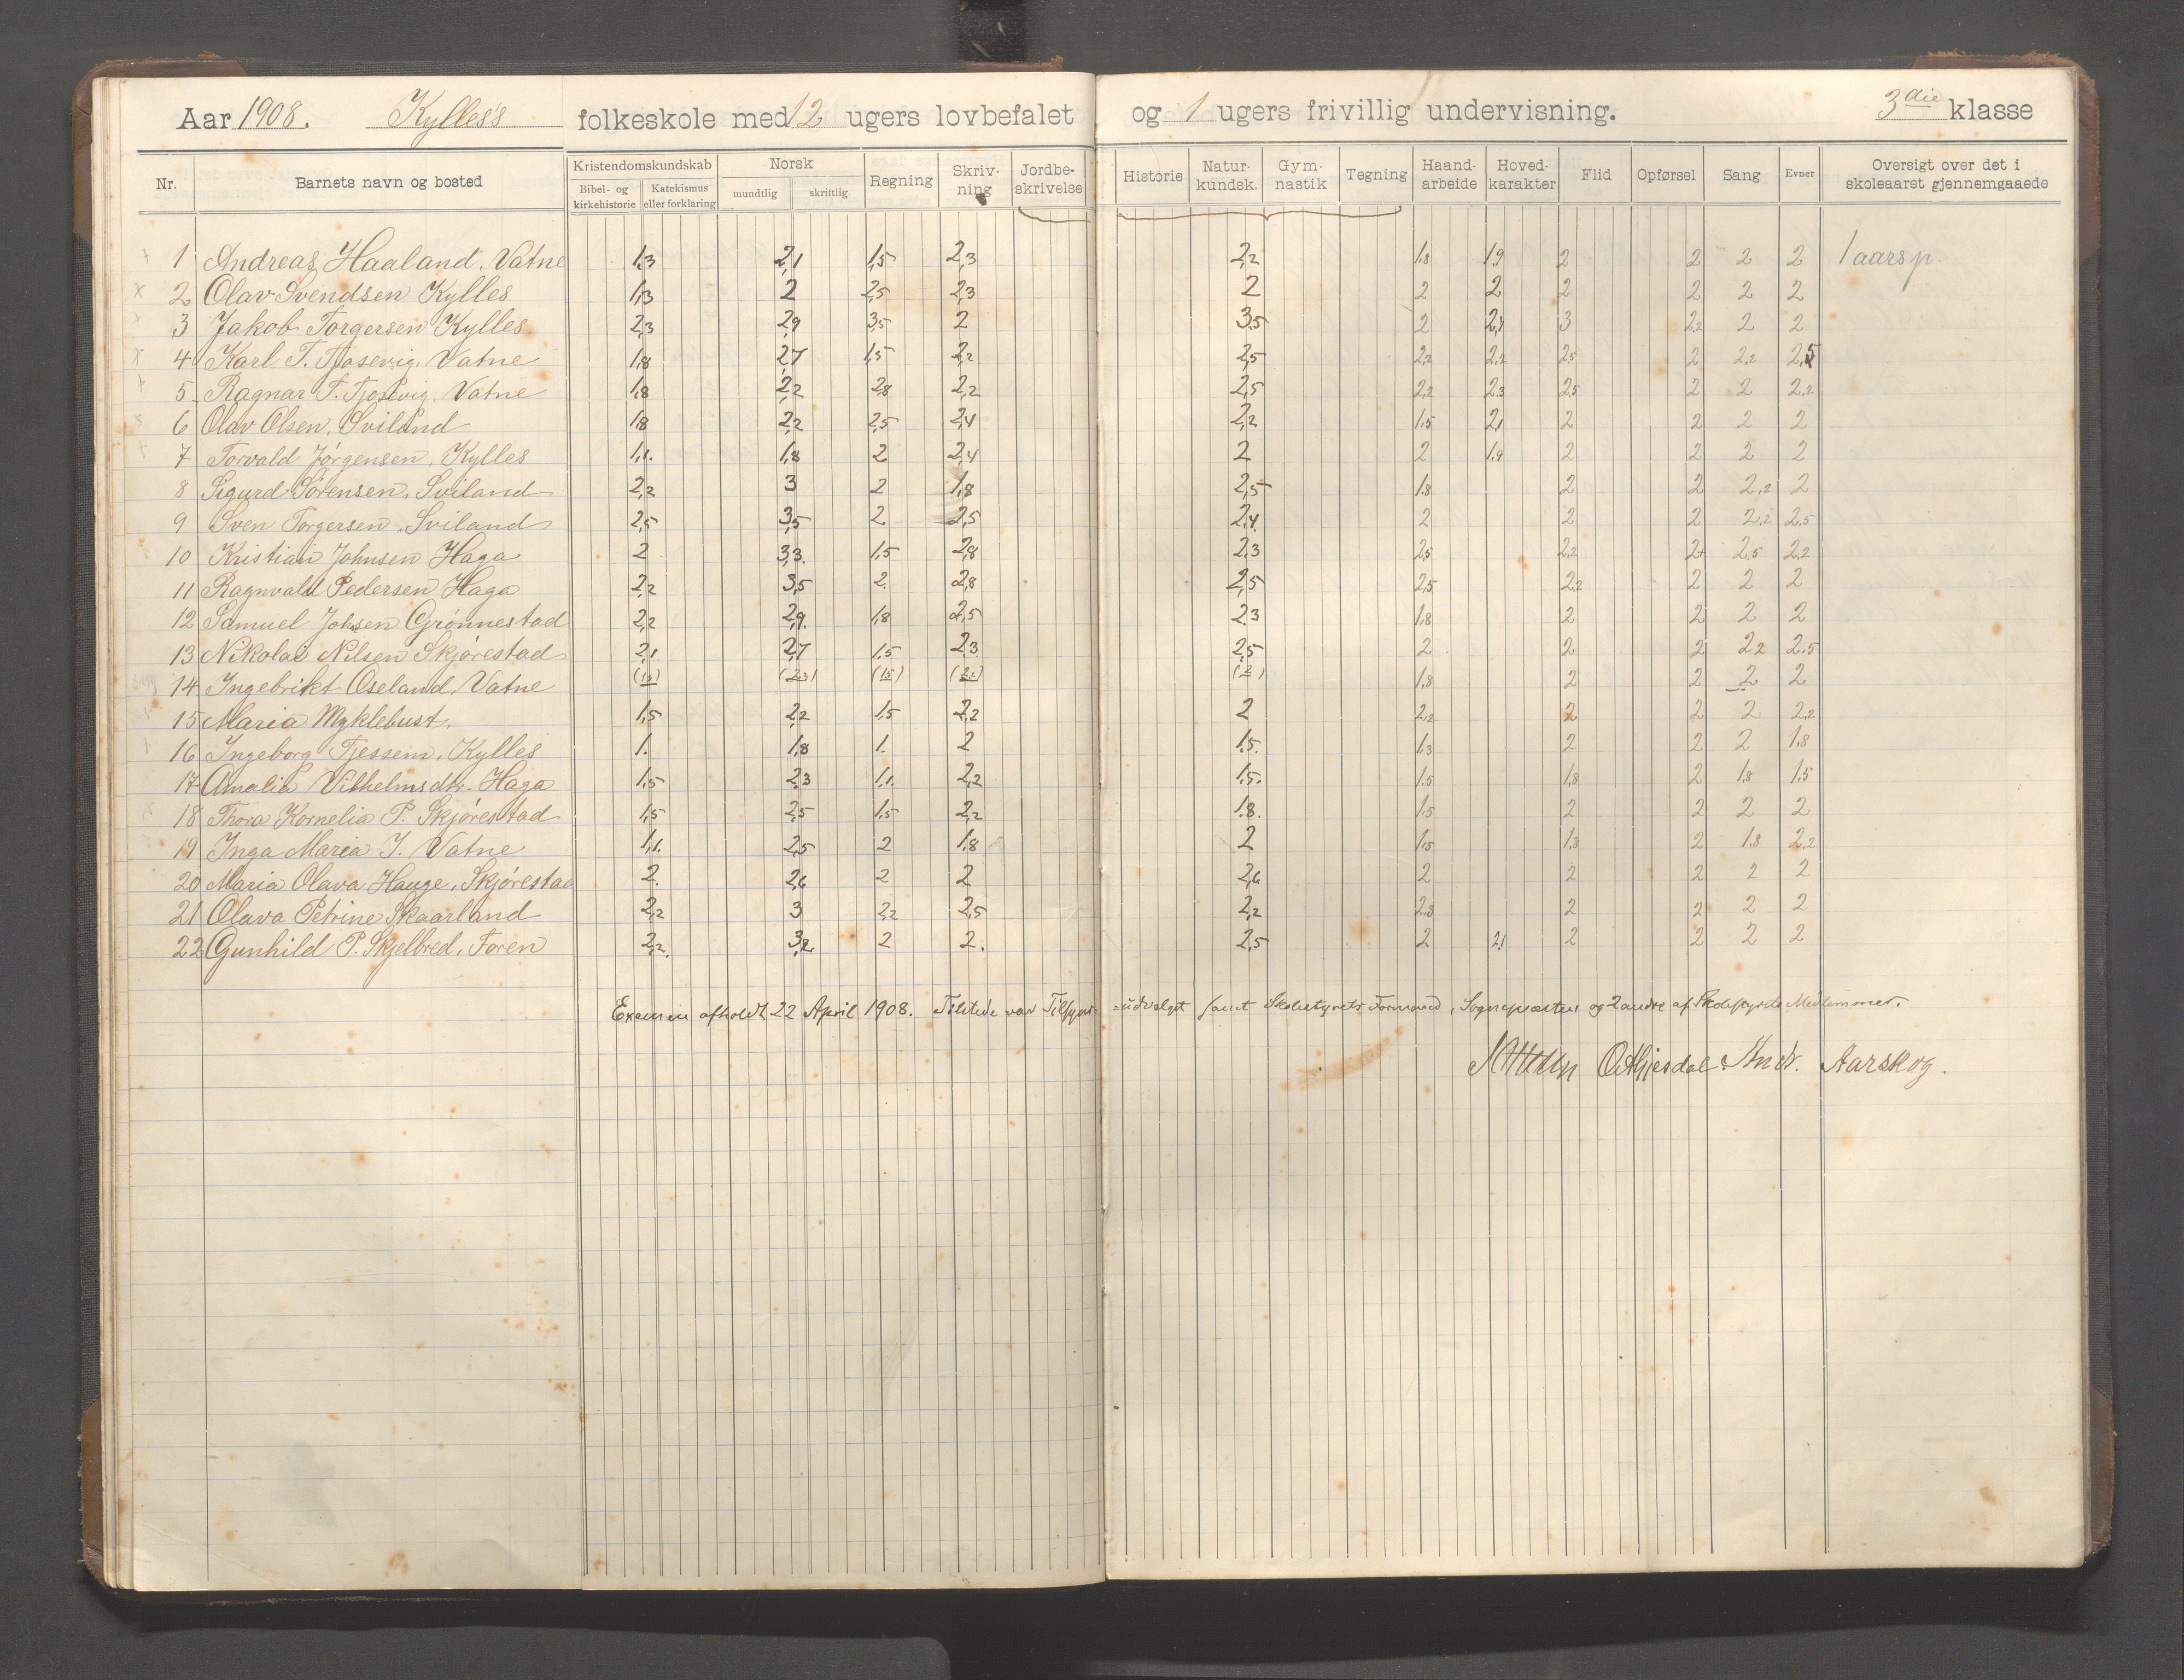 Aar 1908. Kylles's folkeskole med 12 ugers lovbefalet og 1 ugers frivillig undervisning. 3die klasse
Nr. Barnets navn og bosted Kristendomskundskab Bibel- og kirkehistorie Katekismus eller forklaring Norsk mundtlig skriftlig Regning Skriv-ning Jordbe-skrivelse Historie Natur-kundsk. Gym-nastik Tegning Haand-arbeide Hoved-karakter Flid Opførsel Sang Evner Oversigt over det i skoleaaret gjennemgaaede
1 Andreas Haaland. Vatne 1,3 2,1 1,5 2,3 2,2 1,8 1,9 2 2 2 2 1 aarsp.
2 Olav Svendsen Kylles 1,3 2 2,5 2,3 2 2 2 2 2 2 2
3 Jakob Torgersen Kylles 2,3 2,9 3,5 2 3,5 2 2,4 3 2,2 2 2
4 Karl T. Tjosevig. Vatne 1,8 2,7 1,5 2,2 2,5 2,2 2,2 2,5 2 2,2 2,5
5 Ragnar T. Tjosevig. Vatne 1,8 2,2 2,8 2,2 2,5 2,2 2,3 2,5 2 2 2,2
6 Olav Olsen. Sviland 1,8 2,2 2,5 2,4 2,2 1,5 2,1 2 2 2 2
7 Torvald Jørgensen. Kylles 1,1. 1,8 2 2,4 2 2 1,9 2 2 2 2
8 Sigurd Sørensen. Sviland 2,2 3 2 1,8 2,5 1,8 2 2 2,2 2
9 Sven Torgersen. Sviland 2,5 3,5 2 2,5 2,4 2 2 2 2,2 2,5
10 Kristian Johnsen Haga 2 3,3. 1,5 2,8 2,3 2,5 2,2 2+ 2,5 2,2
11 Ragnvald Pedersen Haga 2,2 3,5 2. 2,8 2,5 2,5 2,2 2 2 2
12 Samuel Johsen Grønnestad 2,2 2,9. 1,8 2,5 2,3 1,8 2 2 2 2
13 Nikolai Nilsen Skjørestad 2,1 2,7 1,5 2,3 2,5 2 2 2 2,2 2,5
14 Ingebrikt Øseland. Vatne (2,3) (1,5) (2) 1,8 2 2 2 2
15 Maria Myklebust. 1,5 2,2 1,5 2,2 2 2,2 2 2 2 2,2
16 Ingeborg Tjessem. Kylles 1. 1,8 1. 2 1,5. 1,3 2 2 2 1,8
17 Amalia Vilhelmsdtr. Haga 1,5 2,3 1,1. 2,2 1,5. 1,5 1,8 2 1,8 1,5
18 Thora Kornelia P. Skjørestad 1,5 2,5 1,5 2,2 1,8. 1,5 2 2 2 2
19 Inga Maria J. Vatne 1,1. 2,5 2 1,8 2 1,5 1,8 2 1,8 2,2
20 Maria Olava Hauge. Skjørestad 2. 2,6 2 2 2,6 2 2 2 2 2
21 Olava Petrine Skaarland 2,2 3 2,2 2,5 2,2 2,3 2 2 2 2
22 Gunhild P. Skjelbred. Foren 2,2. 3,2 2 2. 2,5 2 2,1 2 2 2 2
Examen afholdt 22 April 1908. Tilstede var Tilsyns= =udvalget samt Skolestyrets Formand, Sognepræsten og 2 andre af Skolestyrets Medlemmer.
Andr. Aarskog.